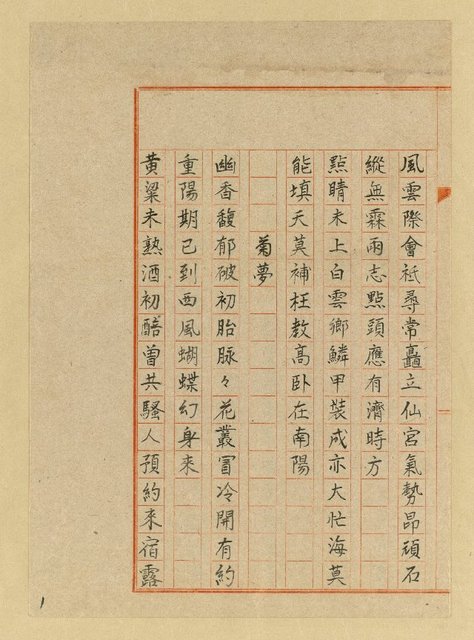 風雲際會祇尋常矗立仙宮氣勢昂頑石
縱無霖雨志點頭應有濟時方
點睛未上白雲鄉鱗甲裝成亦大忙海莫
能填天莫補枉教高卧在南陽
菊夢
幽香馥郁破初胎脉々花叢冒冷開有約
重陽期已到西風蝴蝶幻身來
黃粱未熟酒初醅曾共騷人預約來宿露
1